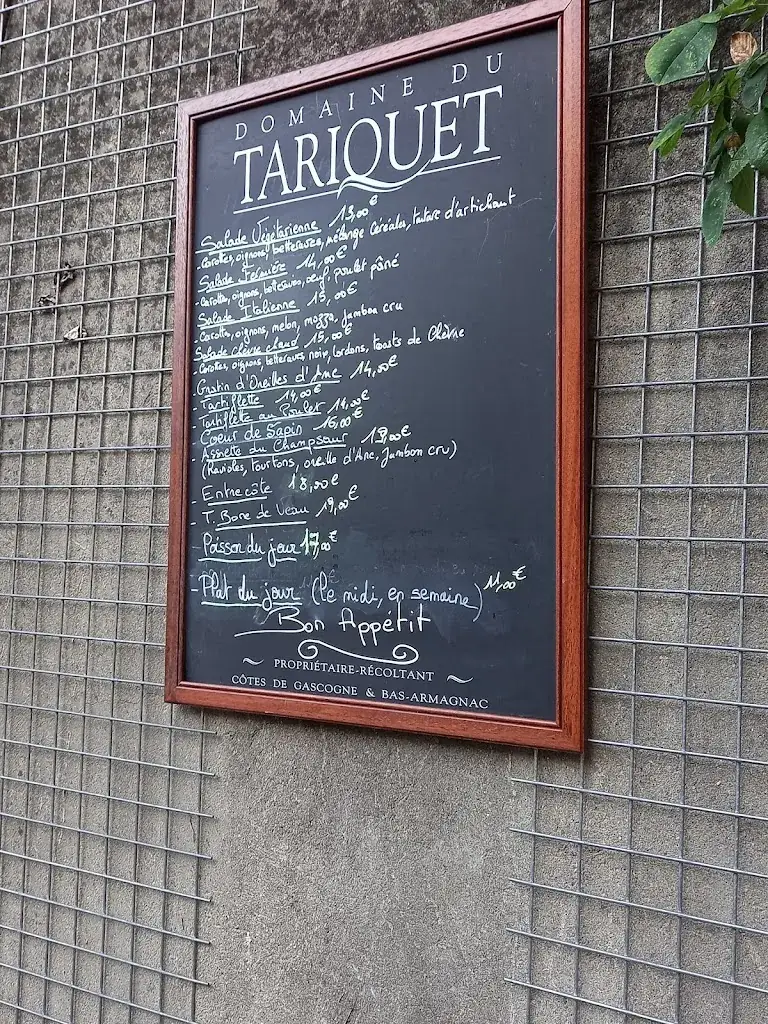 DOMAINE DU
TARIQUET
- Salade Végétarienne 13,00€
- Carottes, oignons, betteraves, mélange céréales, tartare d'artichaut
Salade Fermière 14,00€
- Carottes, oignons, betteraves, oeuf, poulet pâné
Salade Italienne 15,00€
- Carottes, oignons, melon, mozza, Jambon cru
Salade chèvre chaud 15,00€
- Carottes, oignons, betteraves, noix, lardons, toasts de Chèvre
- Gratin d'Oreilles d'Ane 14,00€
- Tartiflette 14,00€
- Tartiflette au Poulet 14,00€
- Coeur de Sapin 16,00€
- Assiette du Champsaur 19,00€
(Ravioles, tourtons, oreille d'Ane, Jambon cru)
- Entrecôte 18,00€
- T. Bone de Veau 19,00€
- Poisson du jour 17,00€
- Plat du jour (le midi, en semaine) 11,00€
Bon Appétit
PROPRIÉTAIRE-RÉCOLTANT
CÔTES DE GASCOGNE & BAS-ARMAGNAC